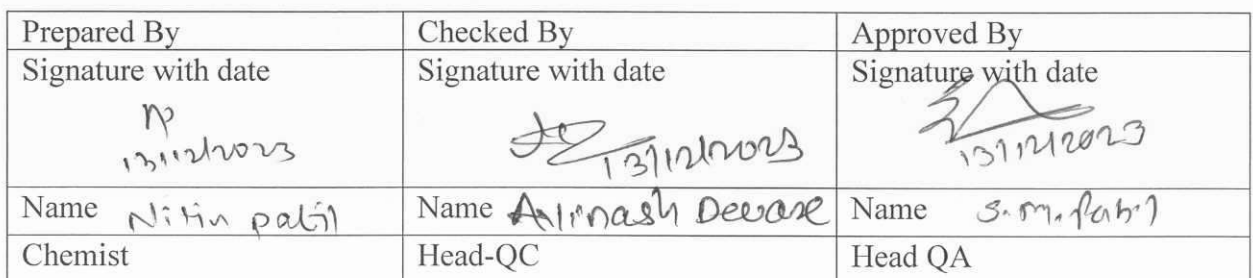 Prepared By Checked By Approved By
Signature with date Signature with date Signature with date
13/12/2023 13/12/2023 13/12/2023
Name Nitin patil Name Avinash Deware Name S.M. Patil
Chemist Head-QC Head QA